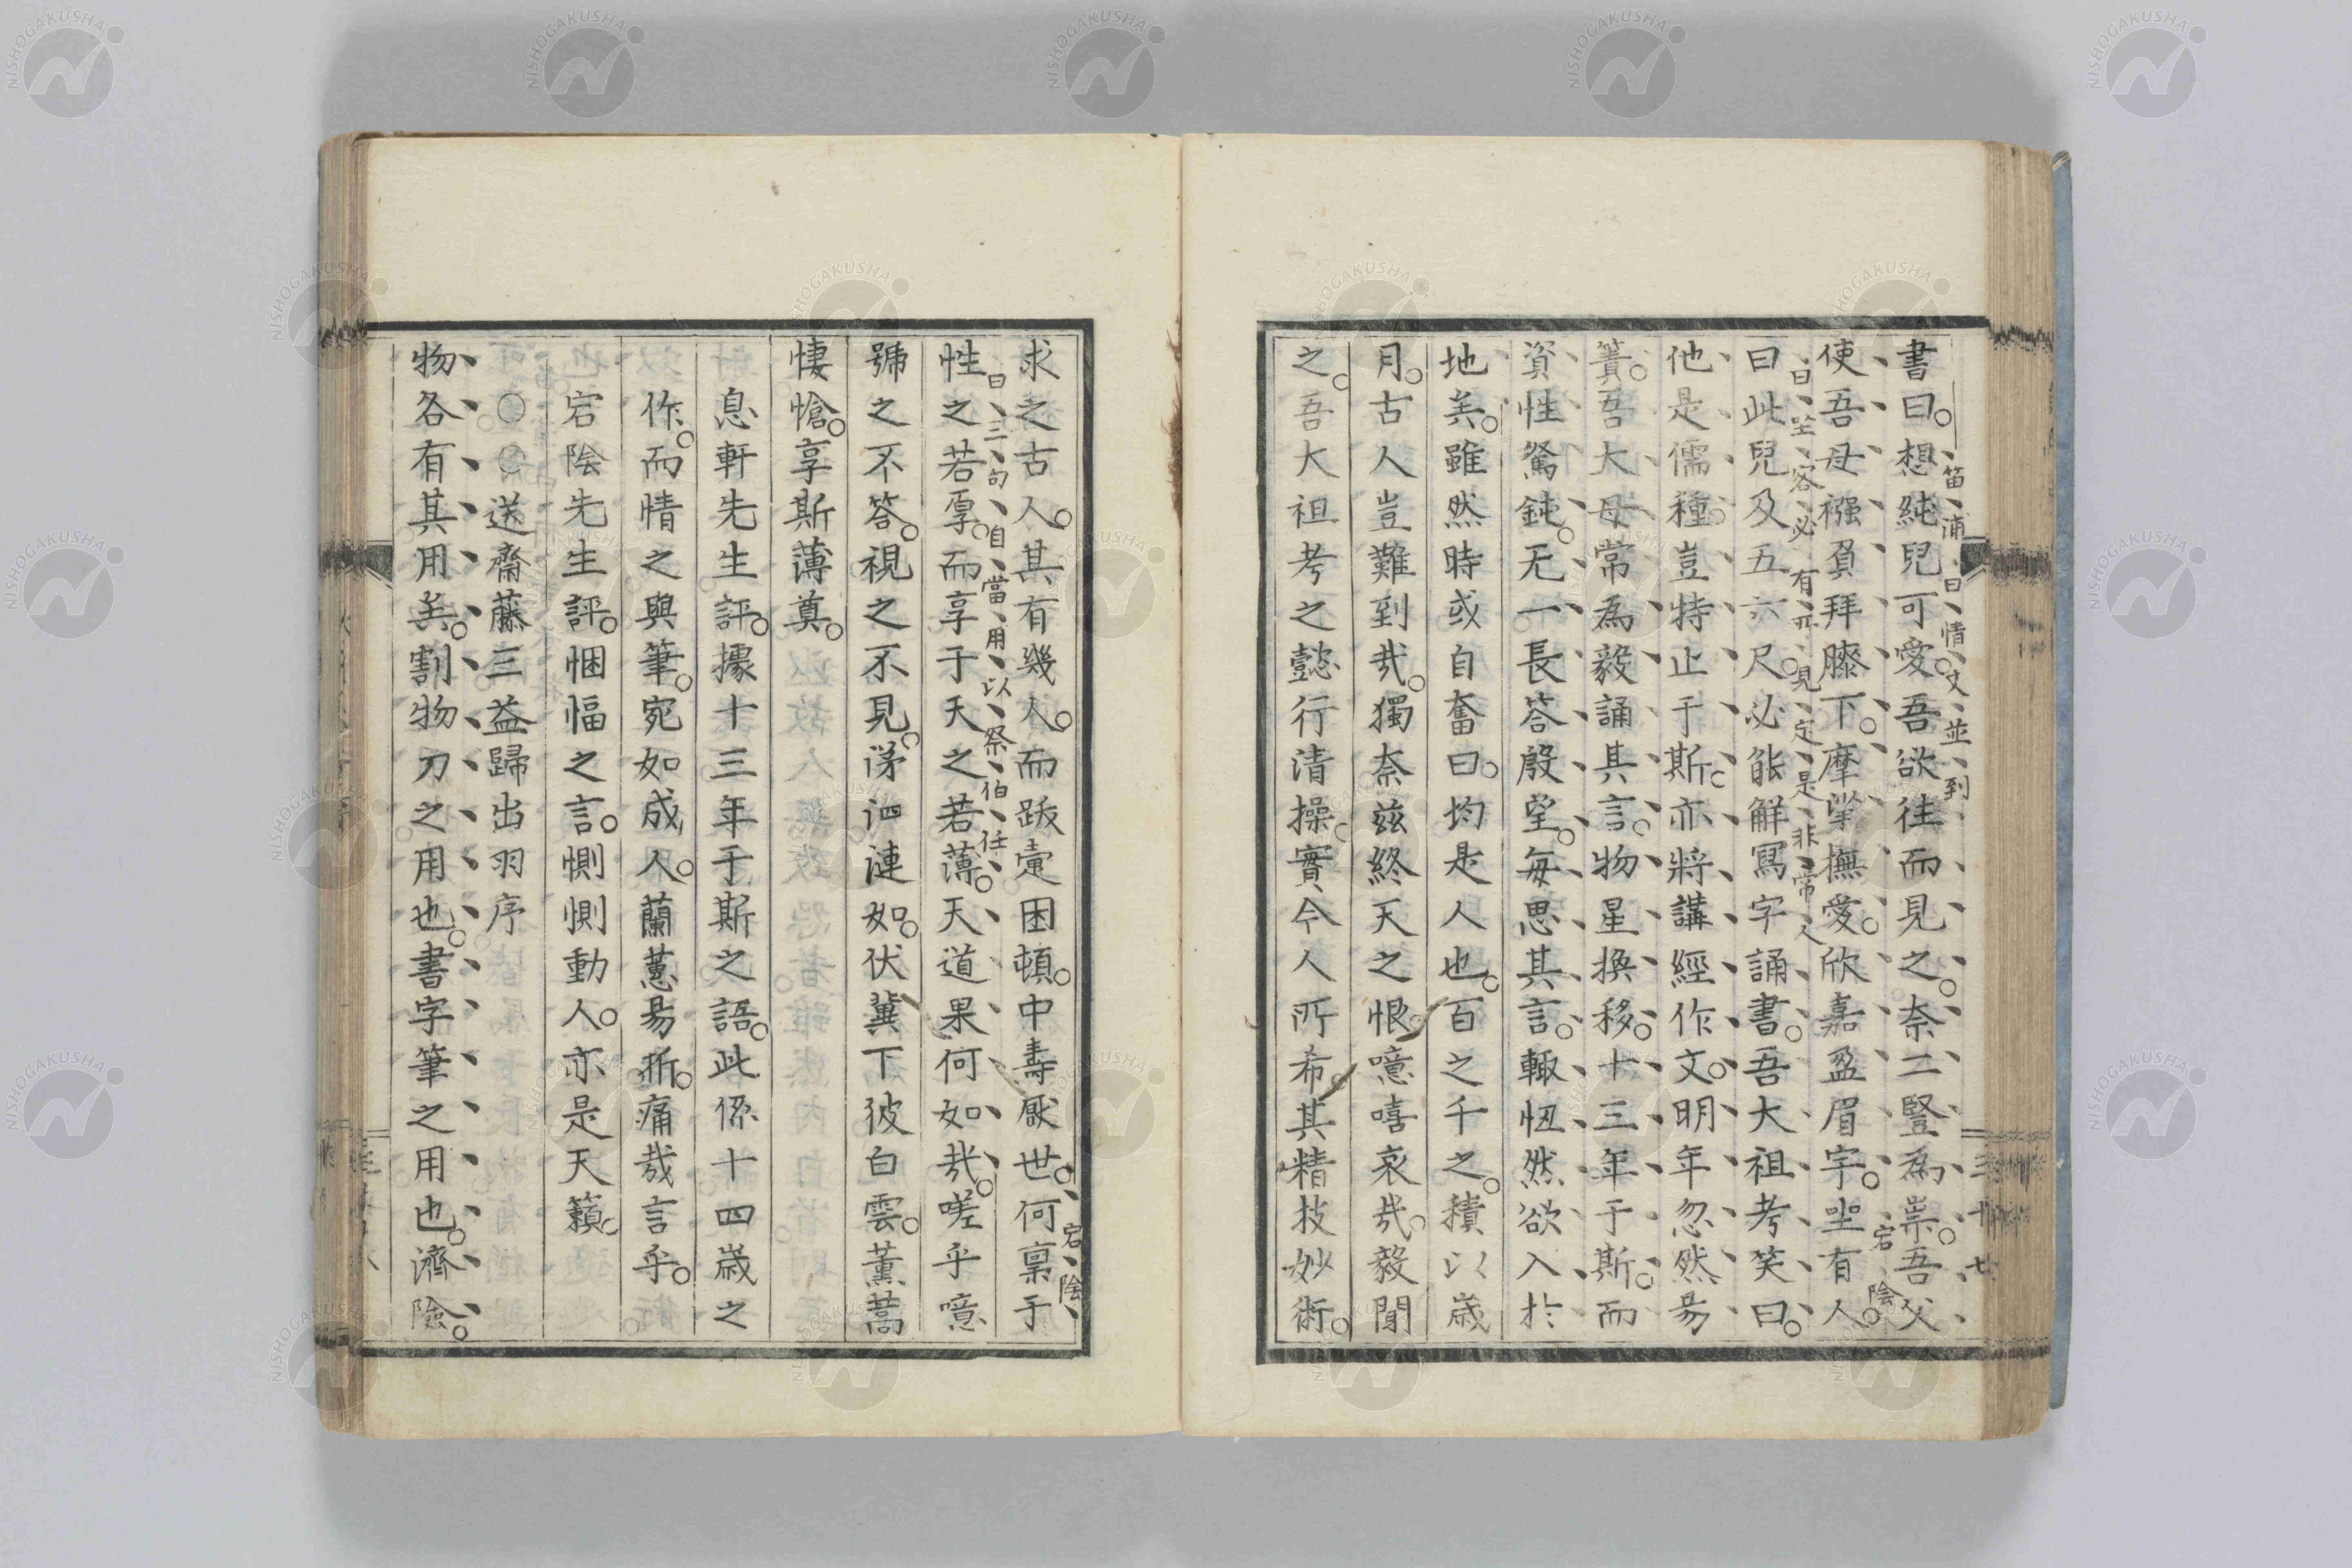 書曰。想純兒可愛。吾欲往而見之。奈二豎為祟。吾父
笛浦曰情文並到
使吾母襁負拜膝下。摩挲撫愛。欣嘉盈眉宇。坐有人。
宕陰曰坐客必有亓見定是非常人
曰此兒及五六尺。必能解寫字誦書。吾大祖考笑曰。
他是儒種。豈特止于斯。亦將講經作文。明年忽然易
簀。吾大母常為毅誦其言。物星換移。十三年于斯。而
資性駑鈍。无一長答殷望。每思其言。輙忸然欲入於
地矣。雖然時或自奮曰。均是人也。百之千之。積以歲
月。古人豈難到哉。獨奈兹終天之恨。噫嘻哀哉。毅聞
之。吾大祖考之懿行清操。實今人所希。其精技妙術。
三十
求之古人。其有幾人。而跋疐困頓。中壽厭世。何稟于
宕陰曰三句自當用以祭伯任
性之若厚。而享于天之若薄。天道果何如哉。嗟乎噫
號之不答。視之不見。涕泗漣如。伏冀下彼白雲。薰蒿
悽愴。享斯薄奠。
息軒先生評。據十三年于斯之語。此係十四歲之
作。而情之與筆。宛如成人。蘭蕙易折。痛哉言乎。
宕陰先生評。悃愊之言。惻惻動人。亦是天籟。
○○送齋藤三益歸出羽序
物各有其用矣。割物刀之用也。書字筆之用也。濟險。